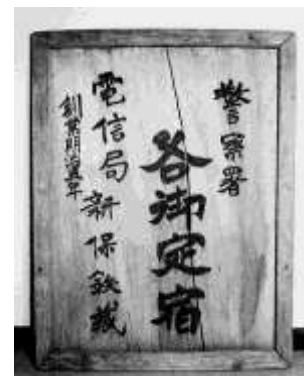 警察署
各御定宿
電信局 新保鉄蔵
創業明治年